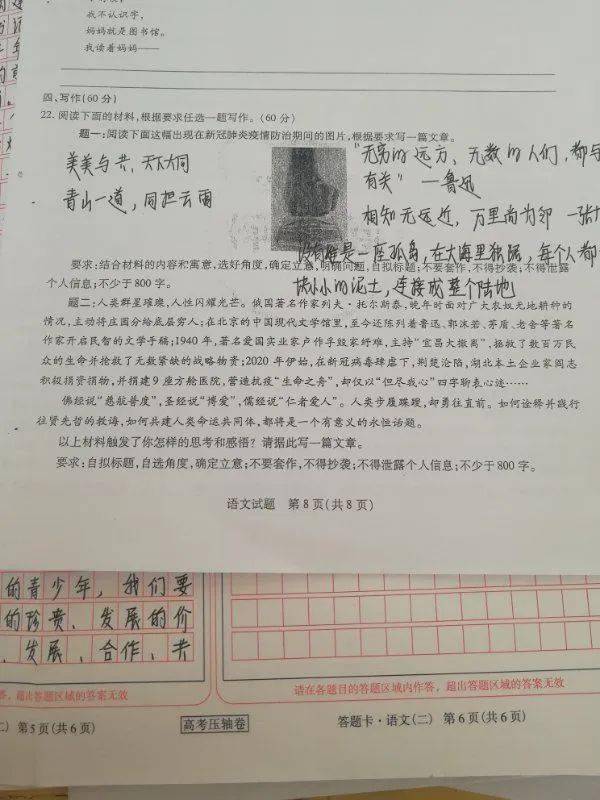 我不认识字，
妈妈就是图书馆。
我读着妈妈——
四、写作(60分)
22. 阅读下面的材料,根据要求任选一题写作。(60分)
题一:阅读下面这幅出现在新冠肺炎疫情防治期间的图片,根据要求写一篇文章。
美美与共，天下大同
青山一道，同担云雨
"无穷的远方、无数的人们，都与
有关" —鲁迅
相知无远近，万里尚为邻 一张
是一座孤岛，在大海里独踞，每个人都
块小小的泥土，连接成整个陆地
要求:结合材料的内容和寓意,选好角度,确定立意,明确问题,自拟标题;不要套作,不得抄袭;不得泄露
个人信息;不少于800字。
题二:人类群星璀璨,人性闪耀光芒。俄国著名作家列夫·托尔斯泰,晚年时面对广大农奴无地耕种的
情况,主动将庄园分给底层穷人;在北京的中国现代文学馆里,至今还陈列着鲁迅、郭沫若、茅盾、老舍等著名
作家开启民智的文学手稿;1940年,著名爱国实业家卢作孚毁家纾难,主持"宜昌大撤离",拯救了数百万民
众的生命并抢救了无数紧缺的战略物资;2020年伊始,在新冠病毒肆虐下,荆楚沦陷,湖北本土企业家阎志
积极捐资捐物,并捐建9座方舱医院,营造抗疫"生命之舟",却仅以"但尽我心"四字聊表心迹……
佛经说"慈航普度",圣经说"博爱",儒经说"仁者爱人"。人类步履蹀躞,却勇往直前。如何诠释并践行
往贤先哲的教诲,如何共建人类命运共同体,都将是一个有意义的永恒话题。
以上材料触发了你怎样的思考和感悟?请据此写一篇文章。
要求:自拟标题,自选角度,确定立意;不要套作,不得抄袭;不得泄露个人信息;不少于800字。
语文试题 第8页(共8页)
的青少年，我们要
的珍贵、发展的价
、发展、合作、共
超出答题区域的答案无效
请在各题目的答题区域内作答，超出答题区域的答案无效
二) 第5页(共6页)
高考压轴卷
答题卡·语文(二) 第6页(共6页)